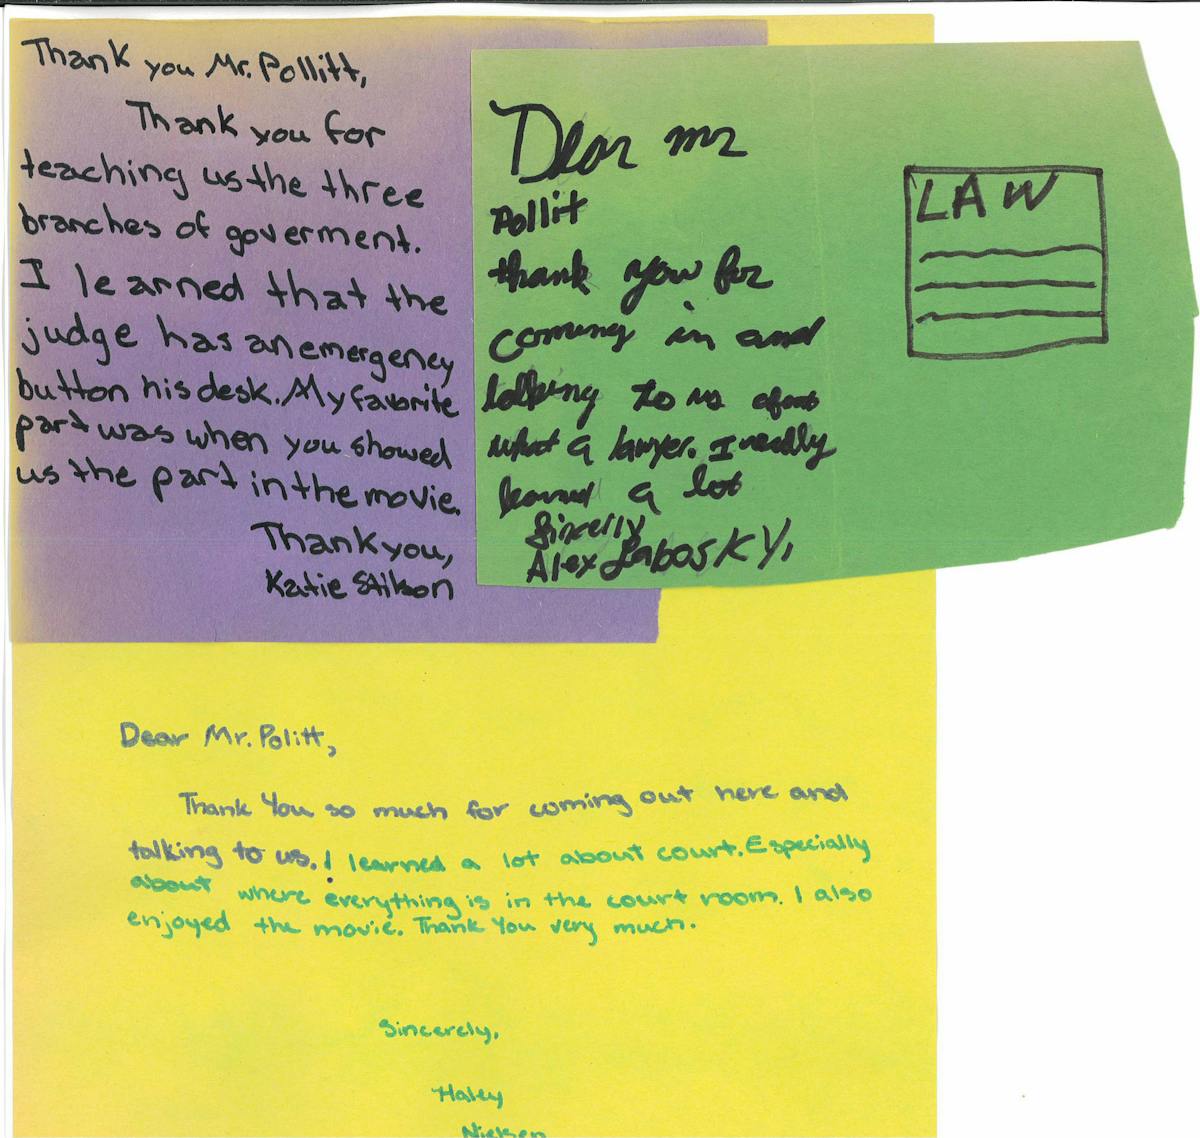 Thank you Mr. Pollitt,
Thank you for
teaching us the three
branches of goverment.
I learned that the
judge has an emergency
button his desk. My favorite
part was when you showed
us the part in the movie.
Thank you,
Katie Stilson
Dear mr
Pollit
thank you for
coming in and
talking to us about
what a lawyer. I really
learned a lot
Sincerly
Alex Labosky,
LAW
Dear Mr. Politt,
Thank You so much for coming out here and
talking to us. I learned a lot about court. Especially
about where everything is in the court room. I also
enjoyed the movie. Thank You very much.
Sincerely,
Haley
Nielsen